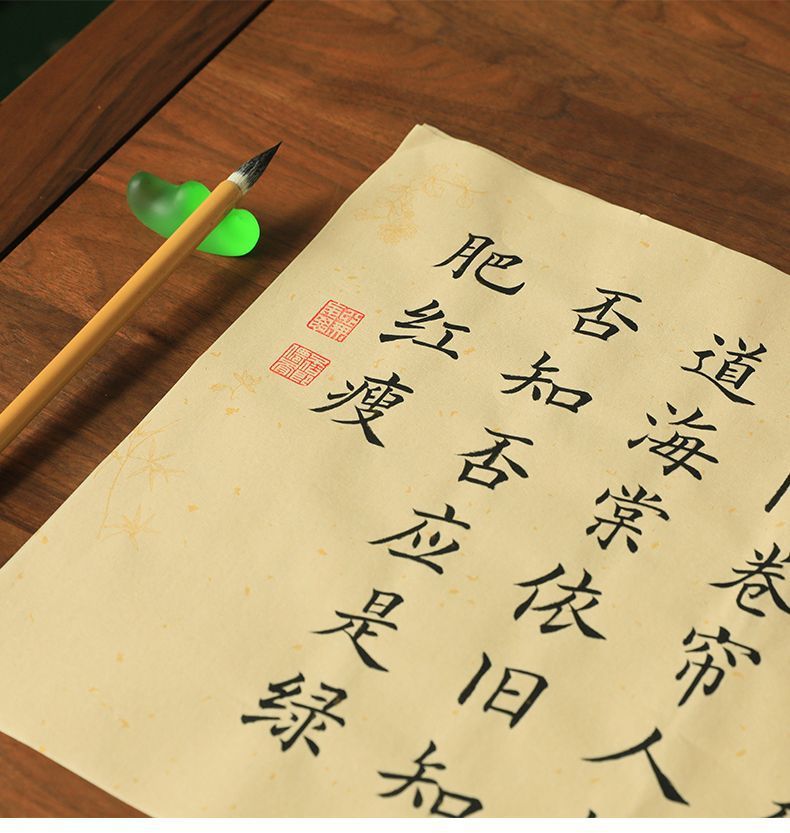 卷帘人
道海棠依旧知
否知否应是绿
肥红瘦